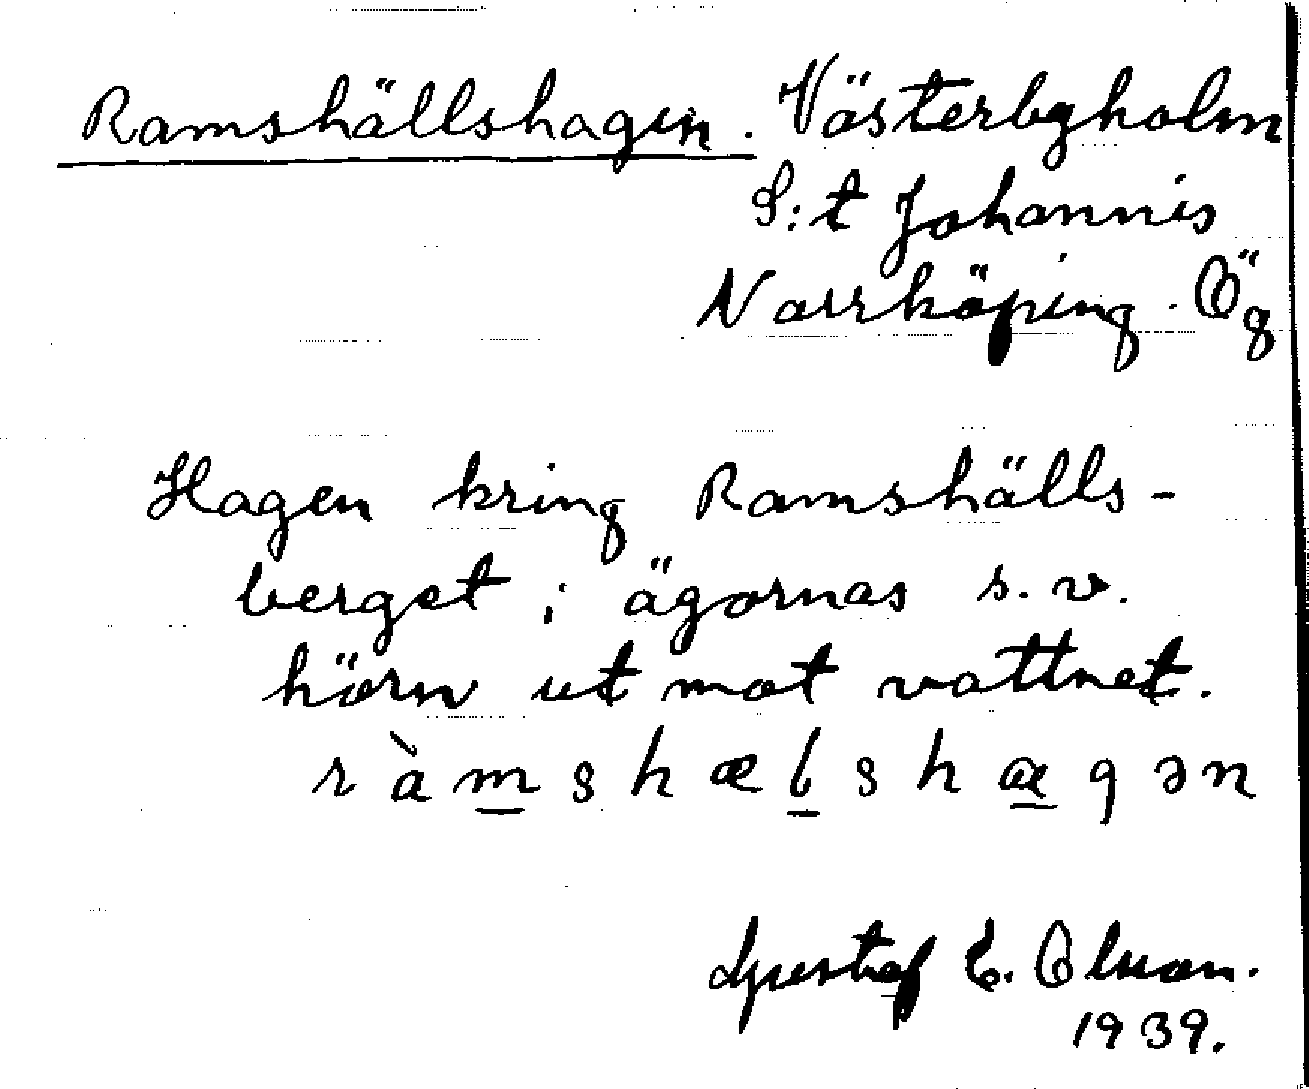 Ramshällshagen. Västerbyholm
S:t Johannis
Norrköping. Ög
Hagen kring Ramshälls-
berget i ägornas s.v.
hörn ut mot vattnet.
ràmshælshagən
Gustaf E. Olson.
1939.